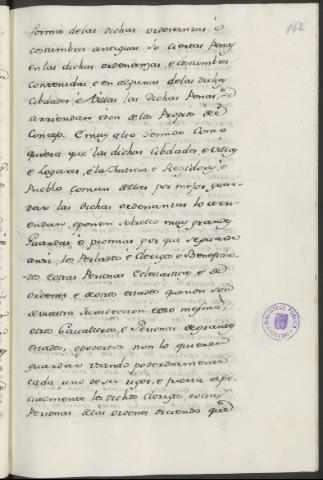 142
forma de las dichas ordenanzas, é
costumbres antiguas so ciertas Penas
en las dichas ordenanzas, e costumbres
contenidas e en algunas de las dichas
Cibdades, e Villas las dichas Penas, se
arriendan e son de los Propios de el
Concejo. E muy alto Sermo Como
quiera que las dichas Cibdades, e Villas
e Logares, é la Justicia, e Regidores, e
Pueblo comun dellas por mejor guar
dar las dichas ordenanzas lo arri
endan, e ponen sobre ello muy grandes
Guardas, é premias por que se guarde
ansi, los Perlados e Clerigos e Beneficia
dos, e otras Personas Eclesiasticas, e de
ordenes e de otro estado que non son
de vuestra Jurisdiccion eso mesmo
otros Cavalleros, e Personas de grande
estado, e poderosos non lo quieren
guardar usando poderosamente
cada uno de su rigor, e fuerza espe
cialmente los dichos Clerigos, e otras
Personas de las ordenes diciendo que
BIBLIOTECA PUBLICA
TOLEDO